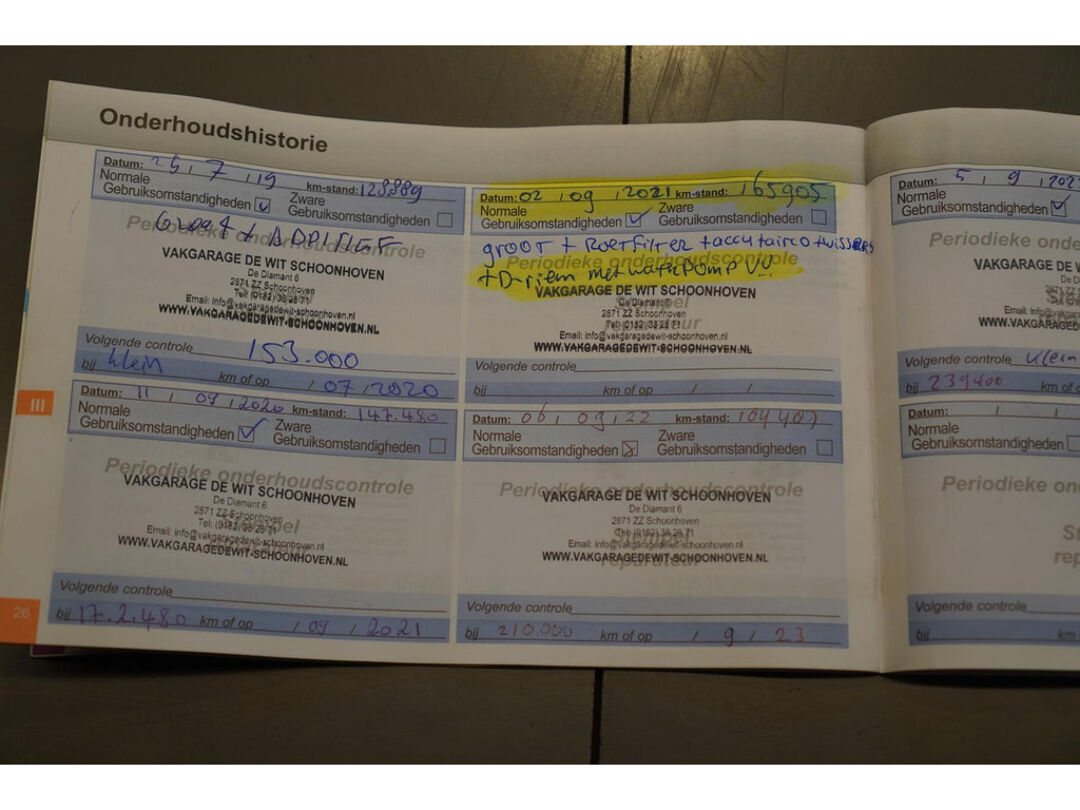 Onderhoudshistorie
Datum: 25 / 7 / 19 km-stand: 128889
Normale Gebruiksomstandigheden Zware Gebruiksomstandigheden
Periodieke onderhoudscontrole
Groot + ADDITIEF
VAKGARAGE DE WIT SCHOONHOVEN
De Diamant 6
2871 ZZ Schoonhoven
Tel: (0182) 38 28 71
Email: info@vakgaragedewit-schoonhoven.nl
WWW.VAKGARAGEDEWIT-SCHOONHOVEN.NL
Volgende controle 153.000
bij klein km of op / 07 / 2020
Datum: 11 / 09 / 2020 km-stand: 147.480
Normale Gebruiksomstandigheden Zware Gebruiksomstandigheden
Periodieke onderhoudscontrole
VAKGARAGE DE WIT SCHOONHOVEN
De Diamant 6
2871 ZZ Schoonhoven
Stempel
Tel: (0182) 38 28 71
Email: info@vakgaragedewit-schoonhoven.nl
WWW.VAKGARAGEDEWIT-SCHOONHOVEN.NL
Volgende controle
bij 17.2.480 km of op / 09 / 2021
III
26
Datum: 02 / 09 / 2021 km-stand: 165905
Normale Gebruiksomstandigheden Zware Gebruiksomstandigheden
groot + Roetfilter + accu + airco +
Periodieke onderhoudscontrole
+ D-riem met waterpomp V!!
VAKGARAGE DE WIT SCHOONHOVEN
De Diamant 6
2871 ZZ Schoonhoven
Tel: (0182) 38 28 71
Email: info@vakgaragedewit-schoonhoven.nl
WWW.VAKGARAGEDEWIT-SCHOONHOVEN.NL
Volgende controle
bij km of op / /
Datum: 06 / 09 / 22 km-stand:
Normale Gebruiksomstandigheden Zware Gebruiksomstandigheden
Periodieke onderhoudscontrole
VAKGARAGE DE WIT SCHOONHOVEN
De Diamant 6
2871 ZZ Schoonhoven
Tel: (0182) 38 28 71
Stempel
Email: info@vakgaragedewit-schoonhoven.nl
reparateur
WWW.VAKGARAGEDEWIT-SCHOONHOVEN.NL
Volgende controle
bij 210.000 km of op / 9 / 23
Datum: 5 / 9 / 202
Normale Gebruiksomstandigheden
Periodieke onde
VAKGARAGE DE
De
2871 ZZ
Tel: (01
Email: info@vakg
WWW.VAKGARAGED
Volgende controle klein
bij 239400 km of o
Datum: / /
Normale Gebruiksomstandigheden
Periodieke on
St
rep
Volgende controle
bij km